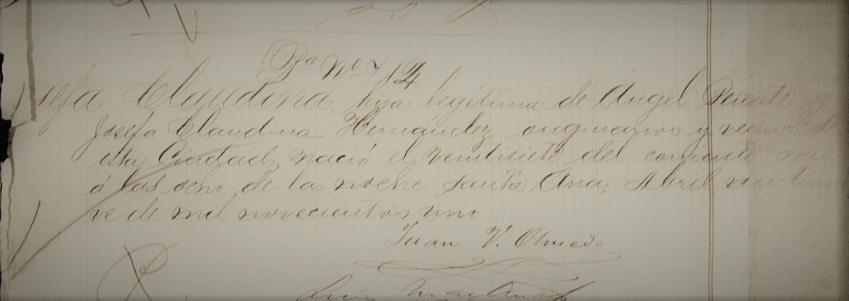 Pa No 712
sefa Claudina, hija legítima de Ángel Peñate y
Josefa Claudina Hernández, originarios y vecinos de
esta Ciudad, nació el veintisiete del corriente mes
á las ocho de la noche Santa Ana, Abril veintinue
ve de mil novecientos uno
Juan V. Olmedo
Luis Martínez